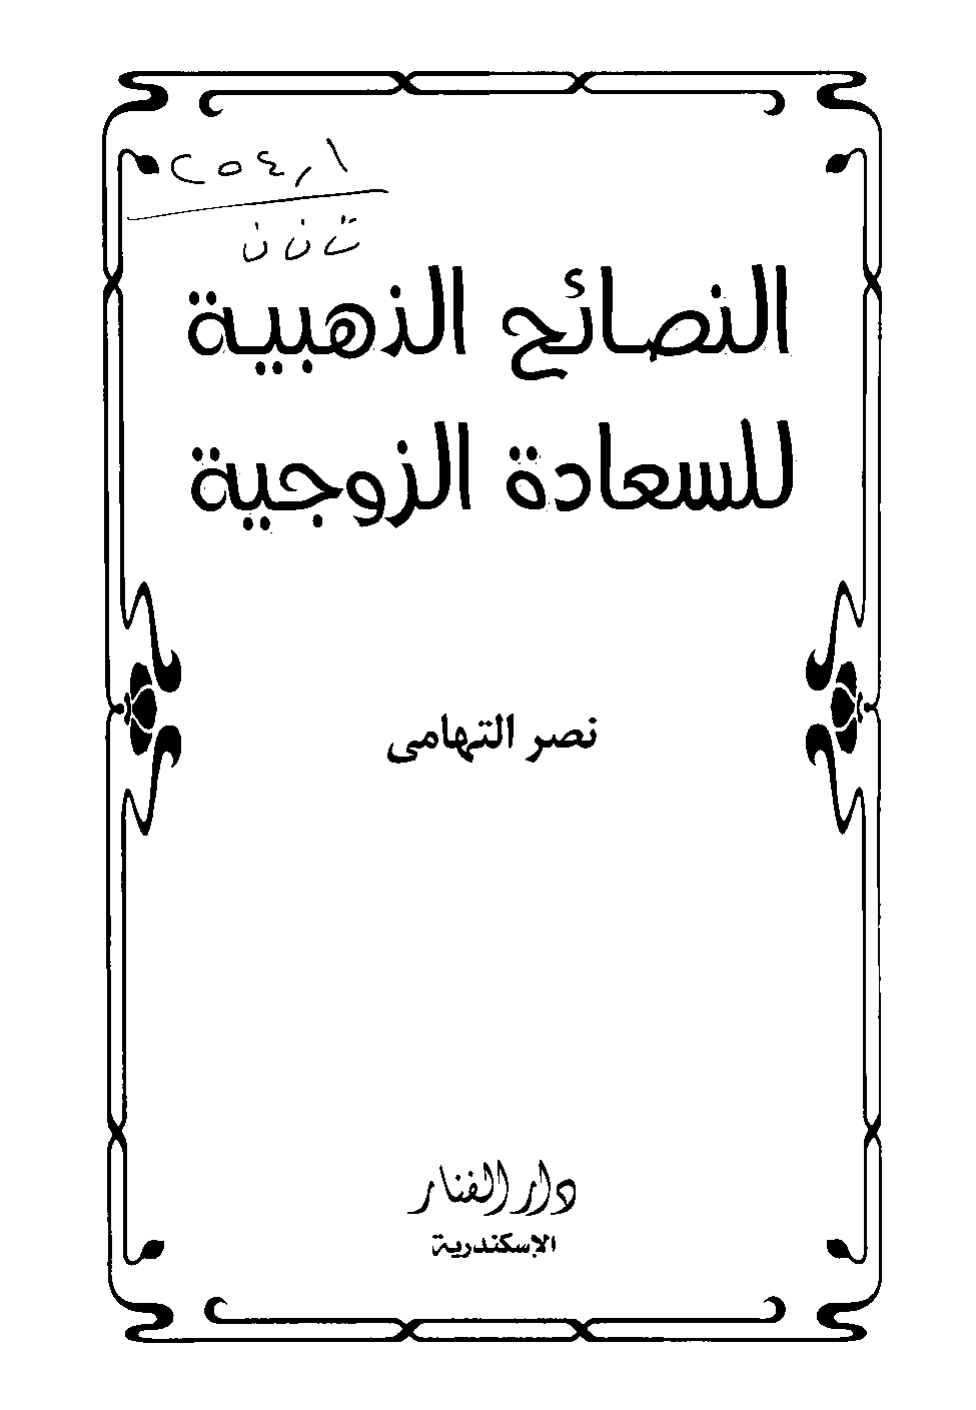 ٢٥٤,١
ت ن ن
النصائح الذهبية
للسعادة الزوجية
نصر التهامى
دار الفنار
الإسكندرية